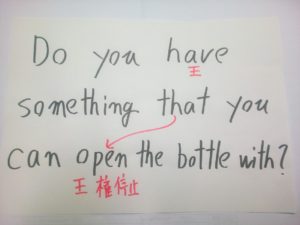 Do you have
王
something that you
can open the bottle with?
王 権停止